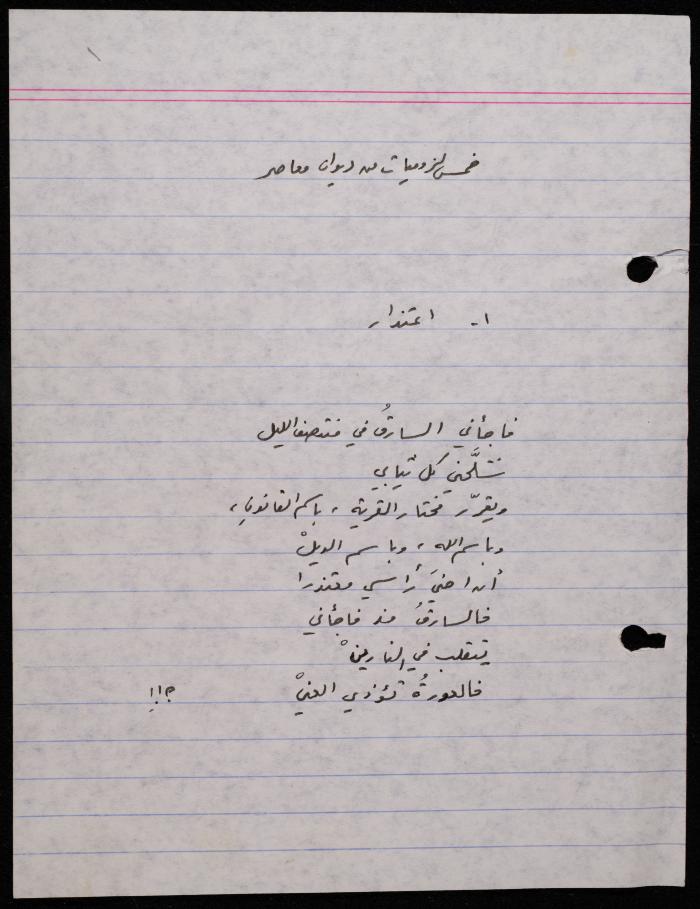 خمس لزوميات من ديوان معاصر
١- اعتذار
فاجأني السارقُ في منتصف الليل
شلَّحني كل ثيابي
ويقرّر مختار القرية ، باسم القانونِ ،
وباسم الله ، وباسم الويلْ
أن احنيَ رأسي معتذرا
فالسارقُ منذ فاجأني
يتقلب في النارينْ
فالعورةُ تؤذي العينْ !!؟